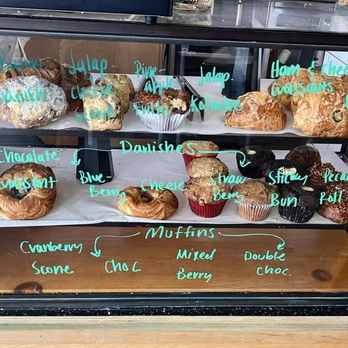 Jalap Pine- jalap- Ham & chee
Danish Cheese apple Kolache Croissants
Scone
Chocolate Danishes
Croissant Blue- Cheese Straw- Sticky Pecan
Berry Berry Bun Roll
Muffins
Cranberry Mixed Double
Scone Choc. Berry Choc.